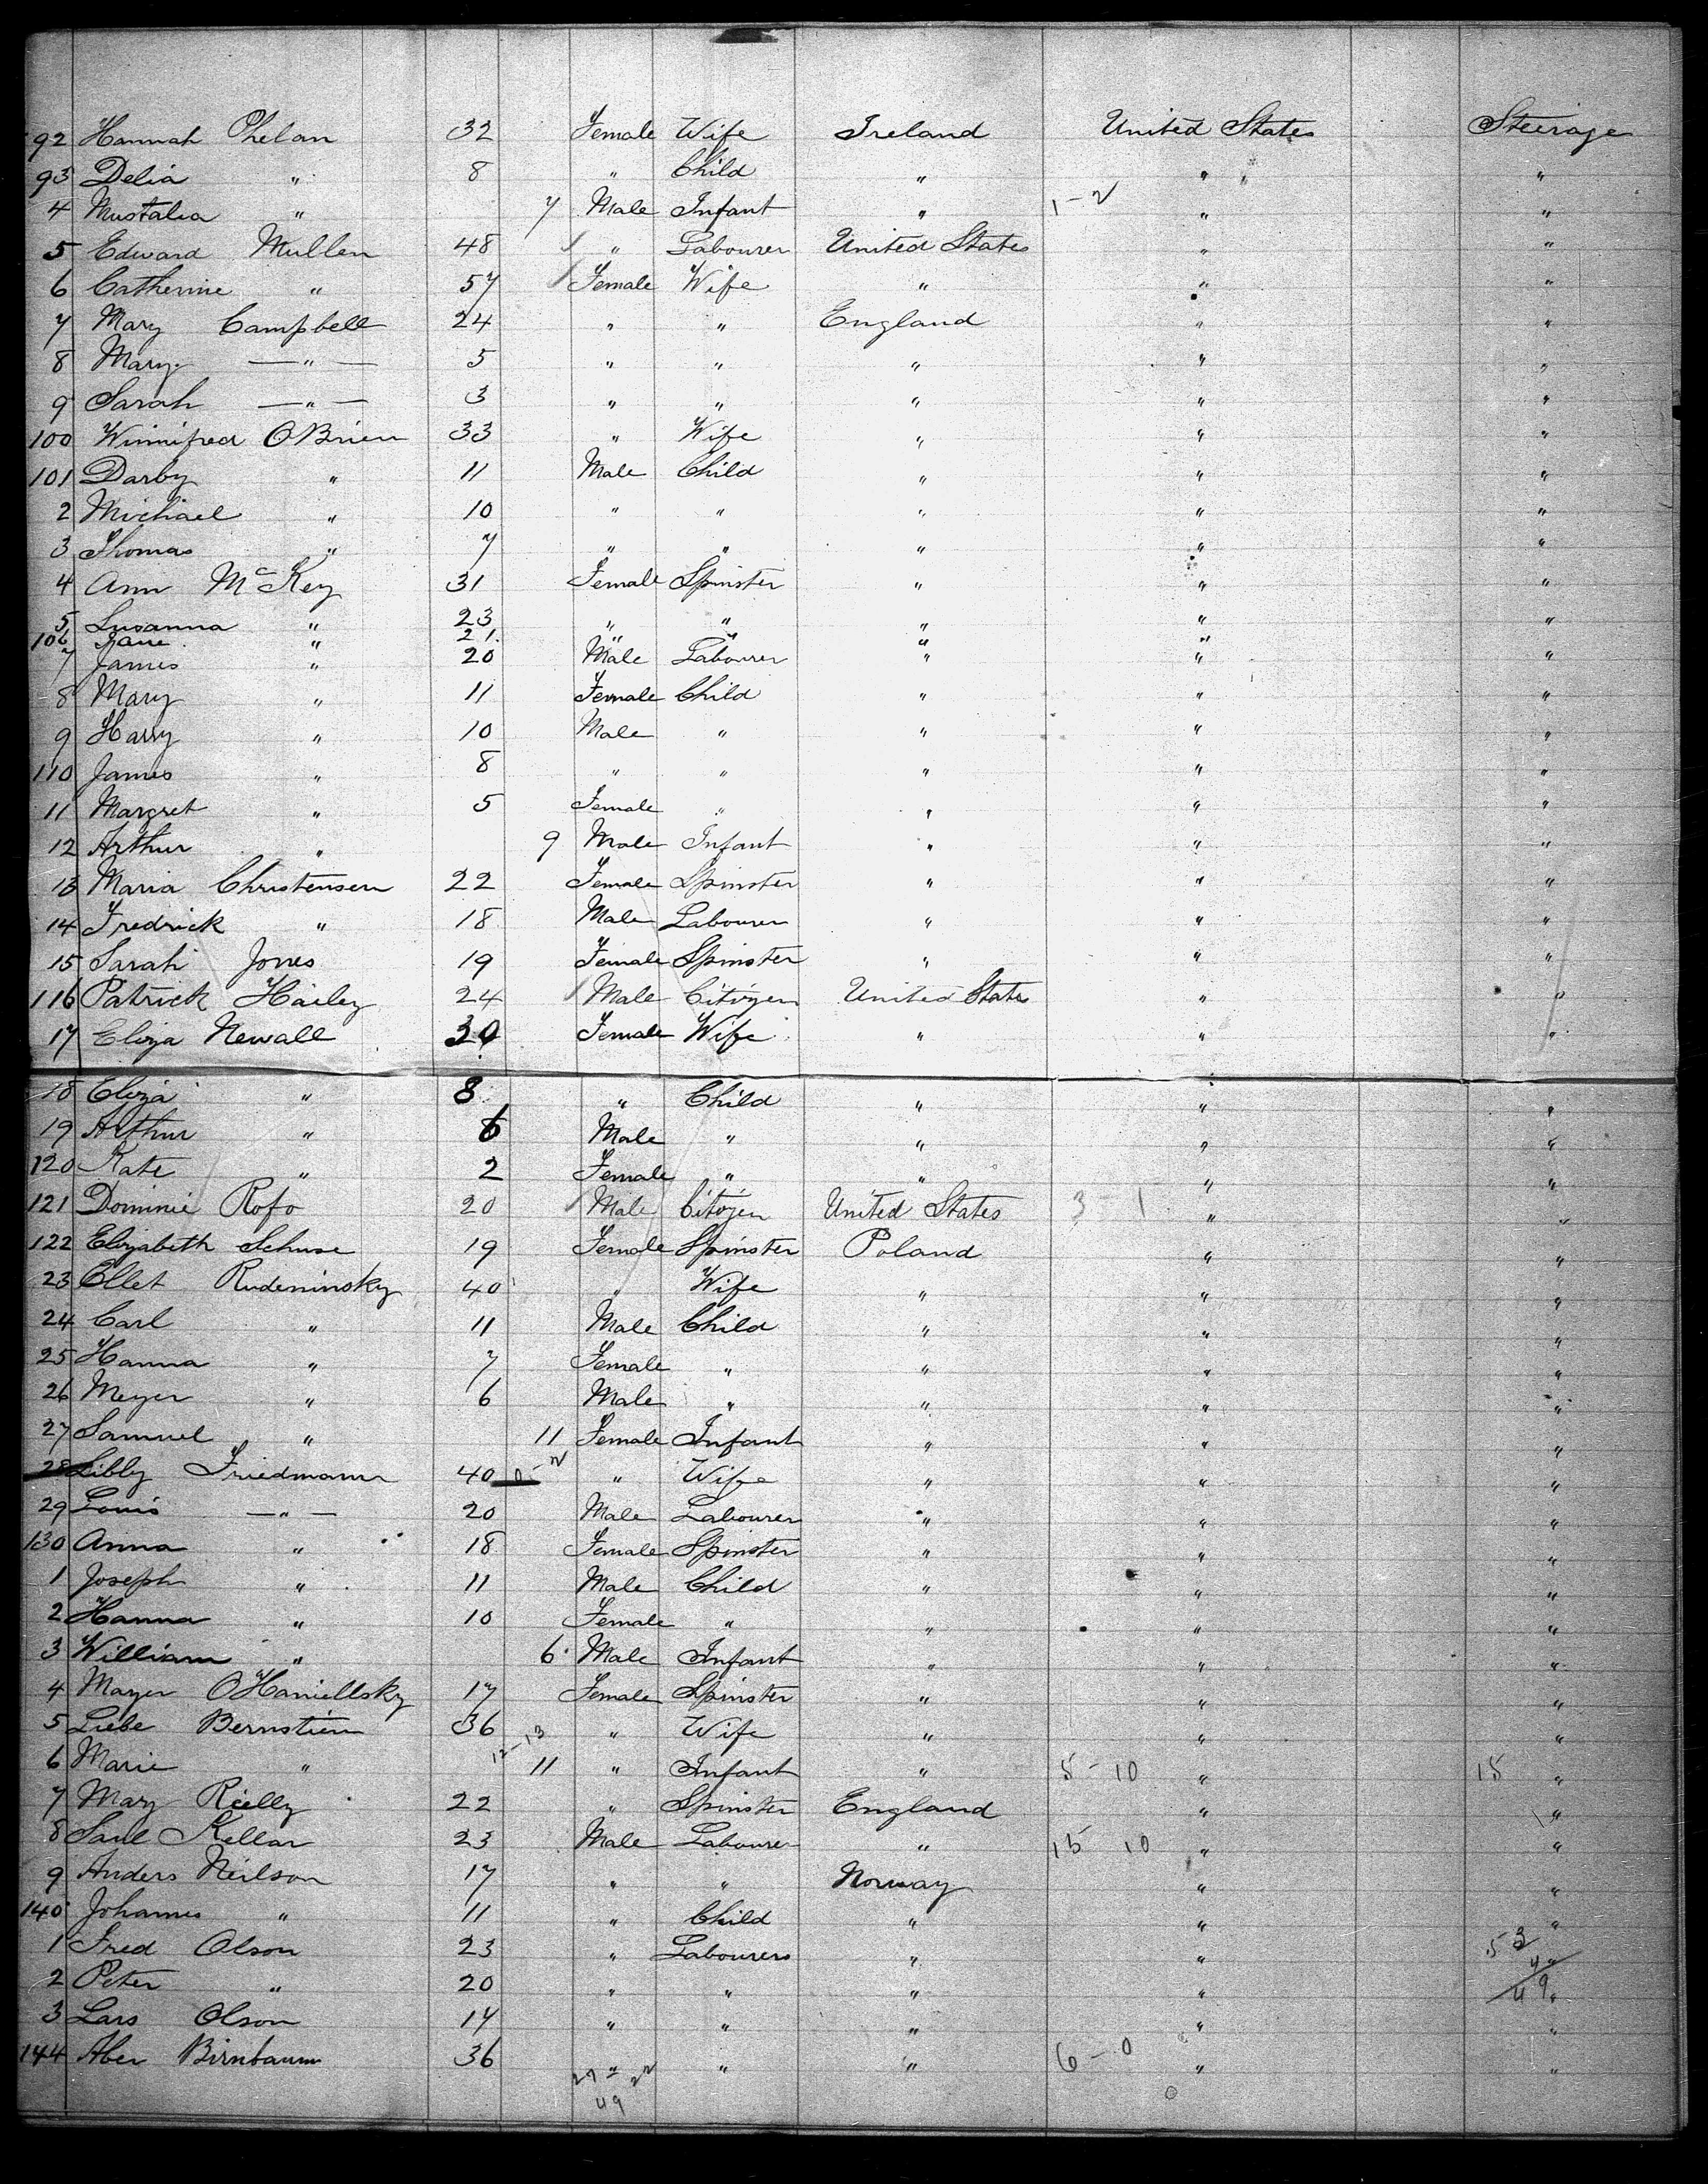 92 Hannah Phelan 32 Female Wife Ireland United States Steerage
93 Delia " 8 " Child " " "
4 Mustalia " 7 Male Infant " 1-2 " "
5 Edward Mullen 48 " Labourer United States " "
6 Catherine " 57 Female Wife " " "
7 Mary Campbell 24 " " England " "
8 Mary — " — 5 " " " " "
9 Sarah — " — 3 " " " " "
100 Winnifred OBrien 33 " Wife " " "
101 Darby " 11 Male Child " " "
2 Michael " 10 " " " " "
3 Thomas " 7 " " " " "
4 Ann McKey 31 Female Spinster " " "
5 Susanna " 23 " " " " "
106 Jane " 21 " " " "
7 James " 20 Male Labourer " " "
8 Mary " 11 Female Child " " "
9 Harry " 10 Male " " " "
110 James " 8 " " " " "
11 Margret " 5 Female " " " "
12 Arthur " 9 Male Infant " " "
13 Maria Christensen 22 Female Spinster " " "
14 Fredrick " 18 Male Labourer " " "
15 Sarah Jones 19 Female Spinster " " "
116 Patrick Hailey 24 Male Citizen United States " "
17 Eliza Newall 30 Female Wife " " "
18 Eliza " 8 " Child " " "
19 Arthur " 6 Male " " " "
120 Kate " 2 Female " " " "
121 Dominic Rofo 20 Male Citizen United States 3-1 " "
122 Elizabeth Schuse 19 Female Spinster Poland " "
23 Ellet Rudeminsky 40 " Wife " " "
24 Carl " 11 Male Child " " "
25 Hanna " 7 Female " " " "
26 Meyer " 6 Male " " " "
27 Samuel " 11 Female Infant " " "
28 Libby Friedmann 40 " Wife " " "
29 Louis — " — 20 Male Labourer " " "
130 Anna " 18 Female Spinster " " "
1 Joseph " 11 Male Child " " "
2 Hanna " 10 Female " " " "
3 William " 6 Male Infant " " "
4 Mayer OHaniellsky 17 Female Spinster " " "
5 Liebe Bernstien 36 " Wife " " "
6 Marie " 12-13 11 " Infant " 5-10 " 15 "
7 Mary Rielly 22 " Spinster England " "
8 Saul Kellar 23 Male Labourer " 15 10 " "
9 Anders Neilson 17 " " Norway " "
140 Johannes " 11 " Child " " "
1 Fred Olson 23 " Labourers " " 53
2 Peter " 20 " " " " 49 "
3 Lars Olson 14 " " " " "
144 Aber Birnbaum 36 " " 6-0 " "
27 22
49